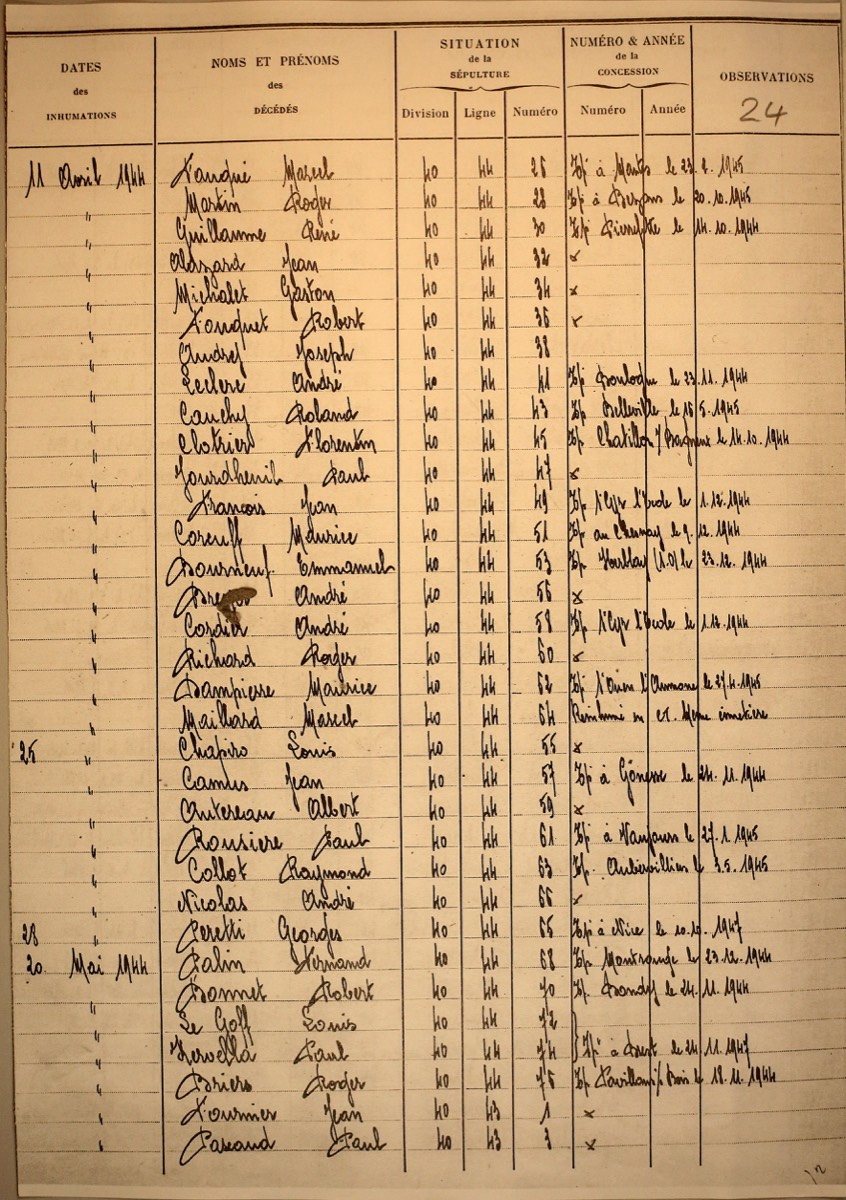 DATES des INHUMATIONS
NOMS ET PRÉNOMS des DÉCÉDÉS
SITUATION de la SÉPULTURE
NUMÉRO & ANNÉE de la CONCESSION
OBSERVATIONS
24
Division Ligne Numéro Numéro Année
11 Avril 1944 Fauqué Marcel 40 44 26 Tp à le 23 1945
" Martin Roger 40 44 28 Tp à Bezons le 20.10.1945
" Guillaume René 40 44 30 Tp Pierrefitte le 14.10.1944
" Alazard Jean 40 44 32 x
" Michalet Gaston 40 44 34 x
" Fouquet Robert 40 44 36 x
" Andref Joseph 40 44 38
" Leclerc André 40 44 41 Tp Boulogne le 23.11.1944
" Cauchy Roland 40 44 43 Tp le 5.1945
" Clotrier Florentin 40 44 45 Tp Chatillon / Bagneux le 14.10.1944
" Jourdhenil Paul 40 44 47 x
" François Jean 40 44 49 Tp l'Ecole le 1.12.1944
" Coreuff Maurice 40 44 51 Tp au Chesnay le 9.12.1944
" Bourneuf Emmanuel 40 44 53 Tp (S.O) le 23.12.1944
" André 40 44 56 x
" Cordier André 40 44 58 Tp l'Ecole le 1.12.1944
" Richard Roger 40 44 60 x
" Dampierre Maurice 40 44 62 Tp l'Aumone le 27.4.1945
" Maillard Marcel 40 44 64 Réinhumé en Meme cimetière
25 " Chapiro Louis 40 44 55 x
" Camus Jean 40 44 57 Tp à Gonesse le 24.11.1944
" Autereau Albert 40 44 59 x
" Rousiere Paul 40 44 61 Tp à Vaujours le 27.1.1945
" Collot Raymond 40 44 63 Tp. Aubervilliers le 3.5.1945
" Nicolas André 40 44 66 x
28 " Peretti Georges 40 44 65 Tp à Nice le 10.10.1947
20. Mai 1944 Palin Fernand 40 44 68 Tp Montrouge le 23.12.1944
" Bonnet Robert 40 44 70 Tp. Bondy le 24.11.1944
" Le Goff Louis 40 44 72
" Kervella Paul 40 44 74 } Tp à Brest le 24.11.1947
" Briers Roger 40 44 76 Tp Pavillons s/s Bois le 18.11.1944
" Fournier Jean 40 43 1 x
" Pascaud Paul 40 43 3 x